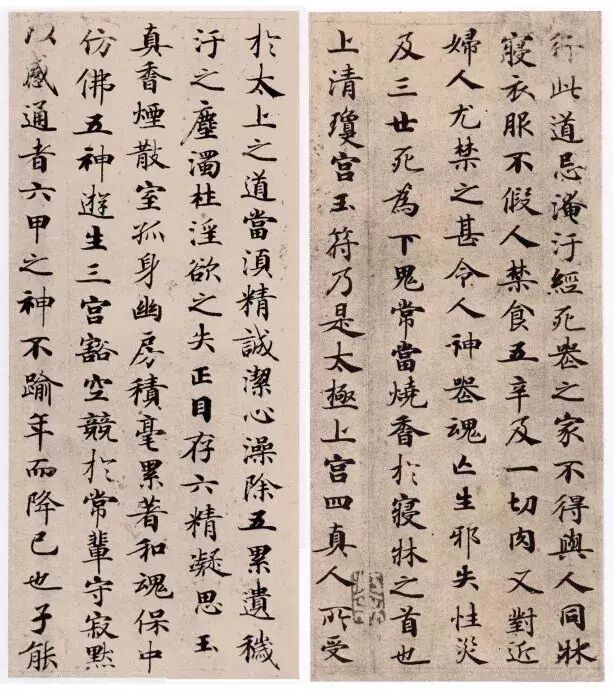 行此道忌淹汙經死喪之家不得與人同牀
寢衣服不假人禁食五辛及一切肉又對近
婦人尤禁之甚令人神喪魂亡生邪失性災
及三世死為下鬼常當燒香於寢牀之首也
上清瓊宮玉符乃是太極上宮四真人所受
於太上之道當湏精誠潔心澡除五累遺穢
汙之塵濁杜淫欲之失正目存六精凝思玉
真香煙散室孤身幽房積毫累著和魂保中
仿佛五神遊生三宮豁空競於常輩守寂默
以感通者六甲之神不踰年而降己也子能